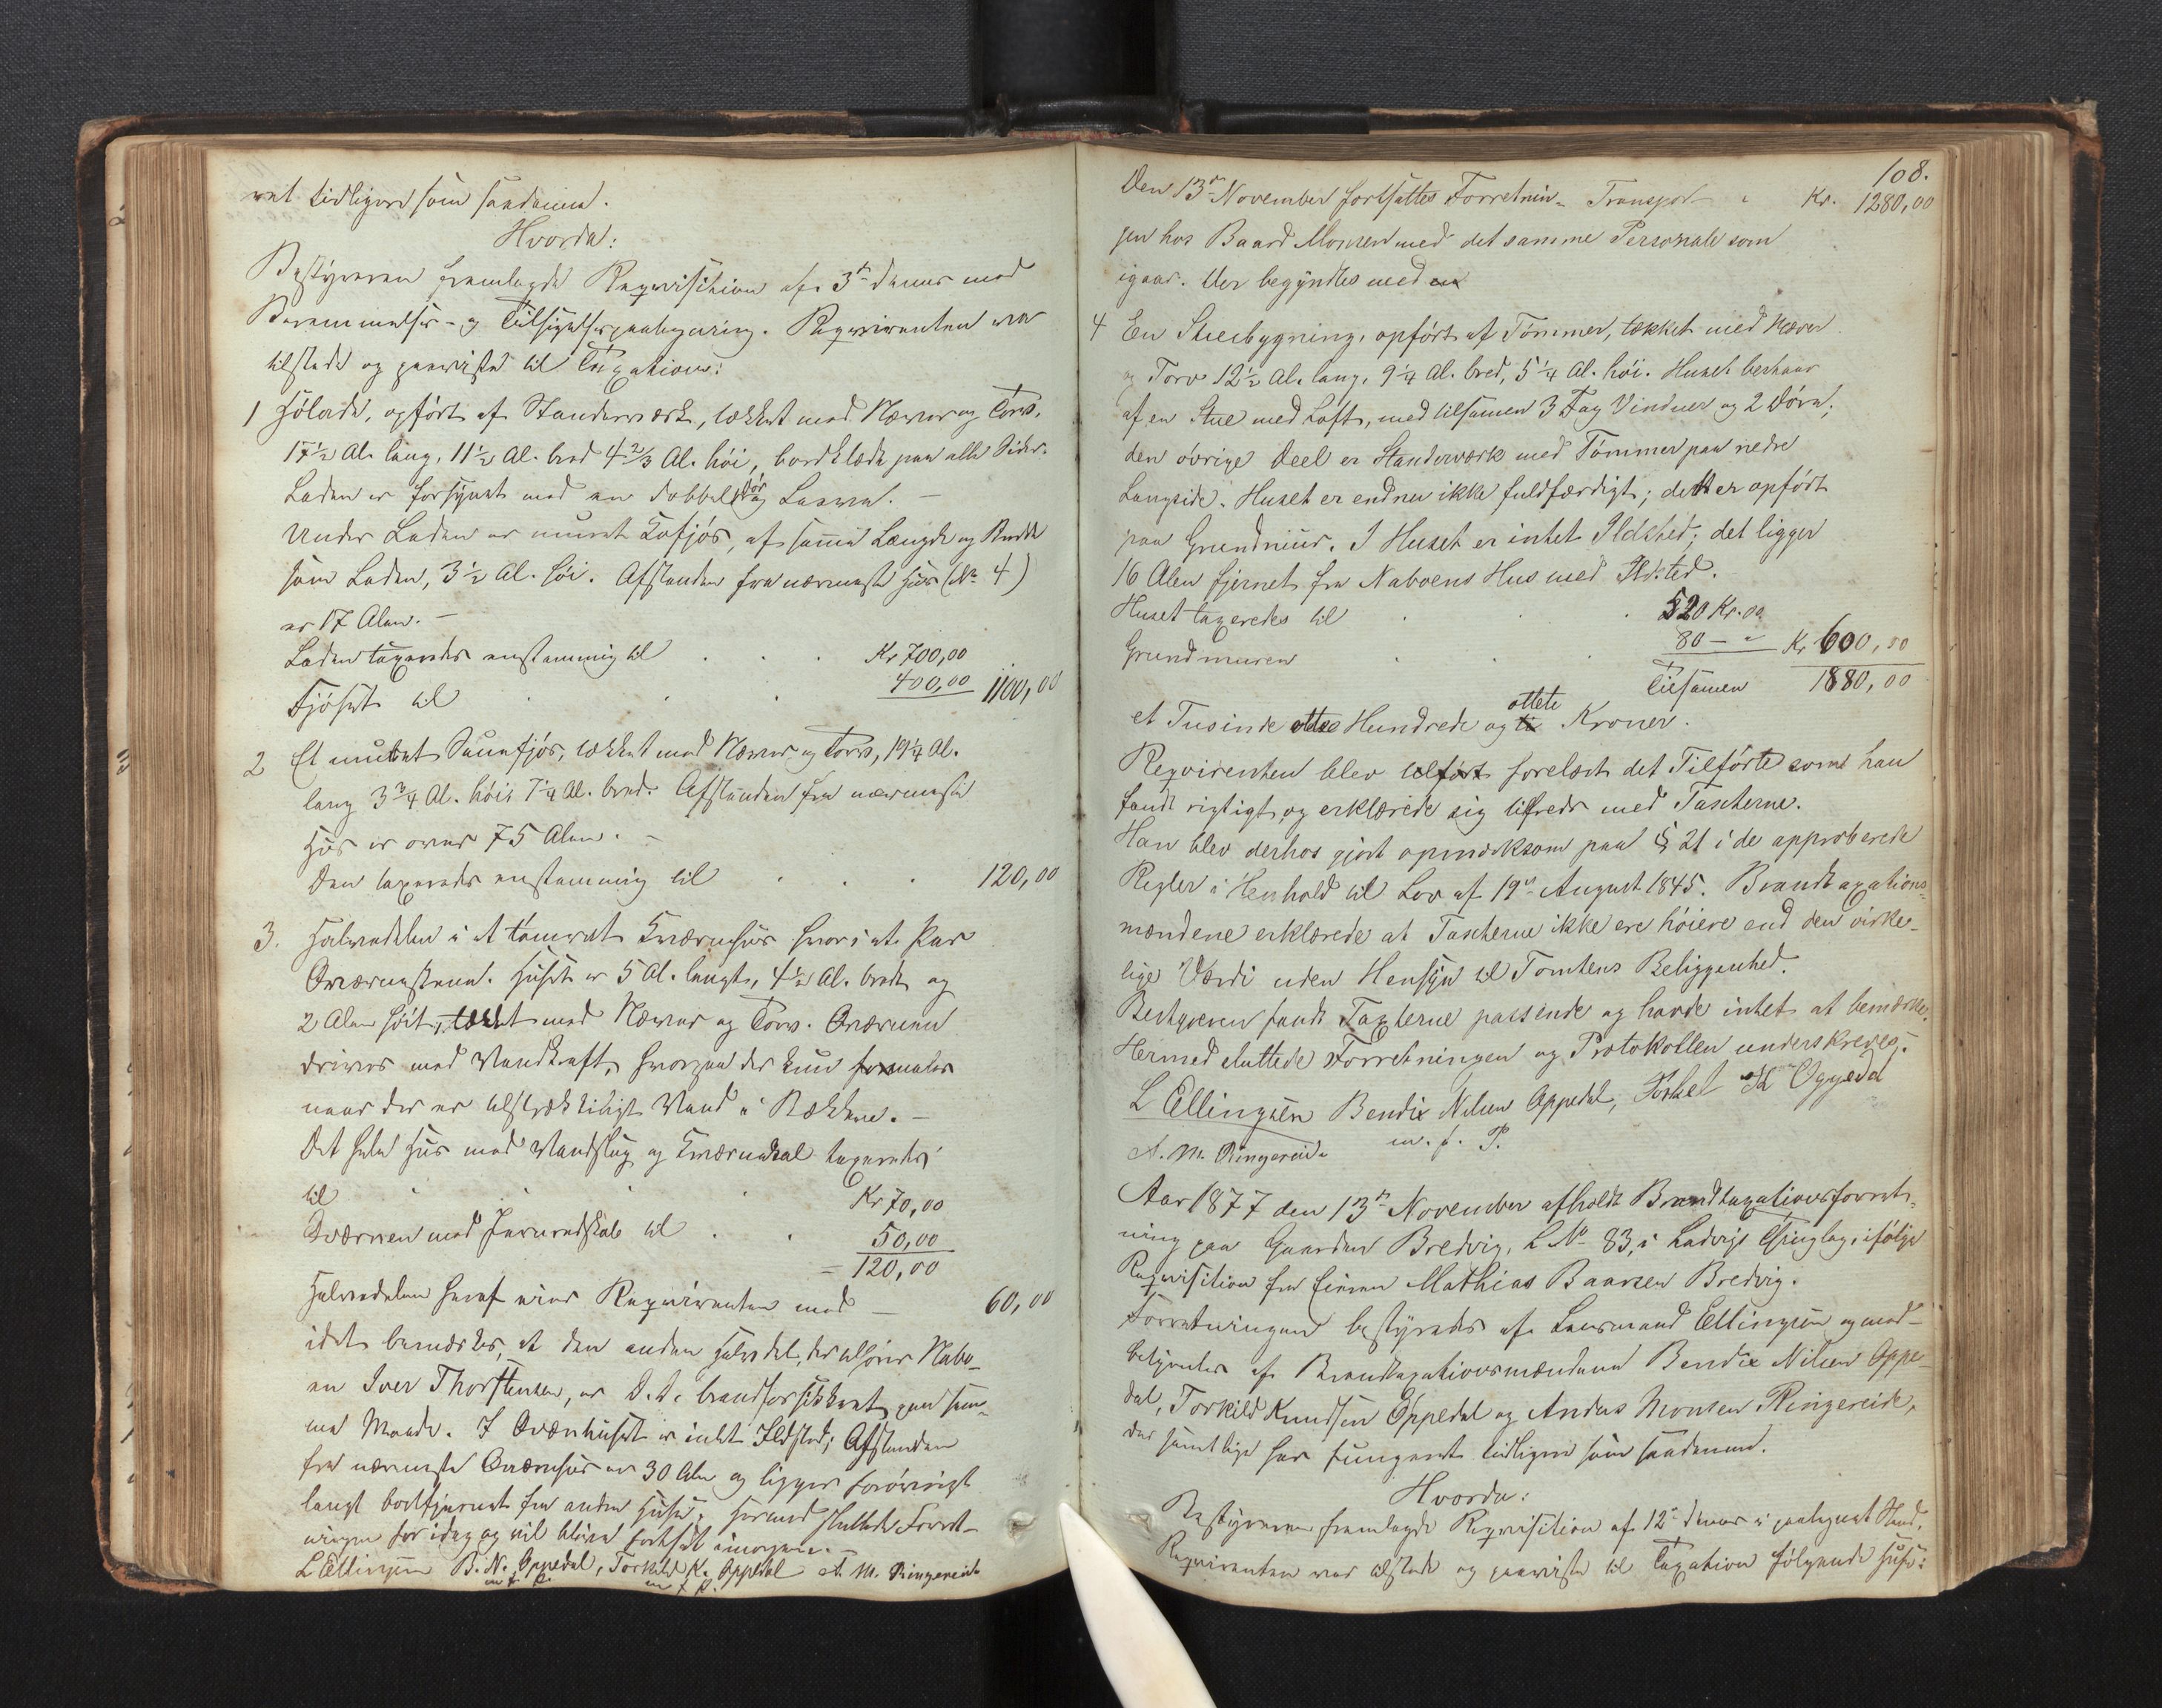 ret tidligere som saadanne.
Hvorda:
Bestyreren fremlagde Reqvisition af 3die dennes med
Berammelses- og Tilsigelsespaategning. Reqvirenten var
tilstede og paaviste til Taxation:
1 Hölade, opført af Standerværk, tækket med Næver og Torv,
17½ Al. lang, 11½ Al. bred 4⅔ Al. höi, bordklædt paa alle Sider.
Laden er forsynet med en dobbelt Dör og Laave. -
Under Laden er muret Kofjös, af samme Længde og Bredde
som Laden, 3½ Al. höi. Afstanden fra nærmeste Huus (No 4)
er 17 Alen. -
Laden taxeredes enstemmig til . . . Kr 700,00
Fjöset til . . . 400,00 1100,00
2 Et muret Sauefjös, tækket med Næver og Torv, 19¼ Al.
lang 3¾ Al. höit 7¼ Al. bred. Afstanden fra nærmeste
Huus er over 75 Alen. -
Den taxeredes enstemmig til . . . 120,00
3. Halvedelen i et tömret Kværnhuus hvori et Par
Qværnstene. Huset er 5 Al. langt, 4½ Al. bredt og
2 Alen höit, tækket med Næver og Torv. Qværnen
drives med Vandkraft, hvorpaa der kun formales
naar der er tilstrækkeligt Vand i Bækken. -
Det hele Huus med Vandslug og Kværnekal taxeredes
til . . . Kr 70,00
Qværnen med Jernredskab til . . 50,00
= 120,00
Halvedelen heraf eier Reqvirenten med — 60,00
idet bemærkes, at den anden Halvdel, der tilhörer Nabo-
en Iver Thorstensen, er d. d. brandforsikkret paa sam-
me Maade. I Qværnhuset er intet Ildsted; Afstanden
fra nærmeste Qværnhuus er 30 Alen og ligger forövrigt
langt bortfjernet fra andre Huse; hermed sluttede Forret-
ningen for idag og vil blive fortsat imorgen. -
L Ellingsen B. N. Oppedal, Torkild K. Oppedal A. M. Ringereide
m. f. P. m f P.
108.
Den 13de November fortsattes Forretnin- Transport " Kr. 1280,00
gen hos Baard Monsen med det samme Personale som
igaar. Der begyndtes med en
4 En Stuebygning, opfört af Tömmer, tækket med Næver
og Torv 12½ Al. lang, 9¼ Al. bred, 5¼ Al. höi. Huset bestaar
af en Stue med Loft, med tilsamen 3 Fag Vinduer og 2 Döre;
den övrige Deel er Standerværk med Tömmer paa nedre
Langside. Huset er endnu ikke fuldfærdigt; det er opfört
paa Grundmur. I Huset er intet Ildsted; det ligger
16 Alen fjernet fra Naboens Hus med Ildsted.
Huset taxeredes til . . 520 Kr. 00
Grundmuren . . . 80 — " Kr 600,00
Tilsamen 1880,00
et Tusinde otte Hundrede og ti otteti Kroner.
Reqvirenten blev tilfört forelæst det Tilförte som han
fandt rigtigt, og erklærede sig tilfreds med Taxterne.
Han blev derhos gjort opmærksom paa § 21 i de approberede
Regler i Henhold til Lov af 19de August 1845. Brandtaxations-
mændene erklærede at Taxterne ikke ere höiere end den virke-
lige Værdi uden Hensyn til Tomtens Beliggenhed.
Bestyreren fandt Taxterne passende og havde intet at bemærke.
Hermed sluttede Forretningen og Protokollen underskreves:
L Ellingsen Bendix Nilsen Oppedal, Torkel K Oppedal
A. M. Ringereide m. f. P.
Aar 1877 den 13de November afholdt Brandtaxationsforret-
ning paa Gaarden Bredvig, L No 83, i Ladvigs Thinglag, ifölge
Reqvisition fra Eieren Mathias Baarsen Bredvig.
Forretningen bestyredes af Lensmand Ellingsen og med-
betjentes af Brandtaxationsmændene Bendix Nilsen Oppe-
dal, Torkild Knudsen Oppedal og Andas Monsen Ringereide,
der samtlige har fungeret tidligere som saadanne.
Hvorda:
Bestyreren fremlagde Reqvisition af 12te dennes i paategnet Stand.
Reqvirenten var tilstede og paaviste til Taxation fölgende Huse: